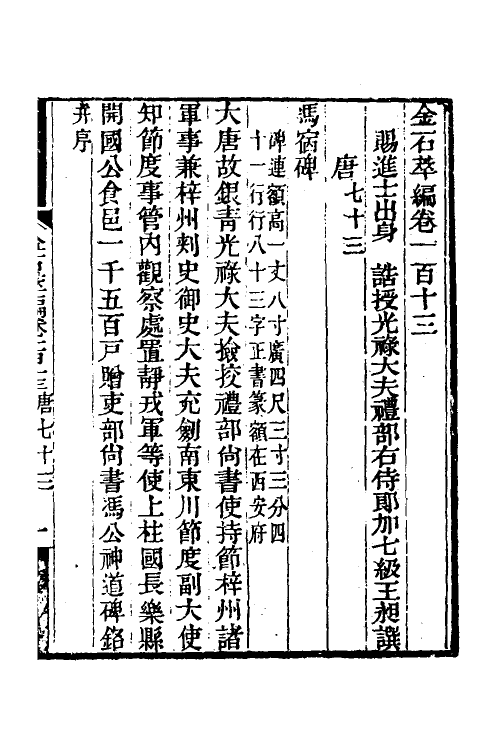 金石萃編卷一百十三
賜進士出身 誥授光祿大夫禮部右侍郎加七級王昶譔
唐七十三
馮宿碑
碑連額高一丈八寸廣四尺三寸三分四
十一行行八十三字正書篆額在西安府
大唐故銀青光祿大夫檢挍禮部尚書使持節梓州諸
軍事兼梓州刾史御史大夫充劒南東川節度副大使
知節度事管内觀察處置靜戎軍等使上柱國長樂縣
開國公食邑一千五百戸贈吏部尚書馮公神道碑銘
并序
金石萃編卷一百十三唐七十三 一